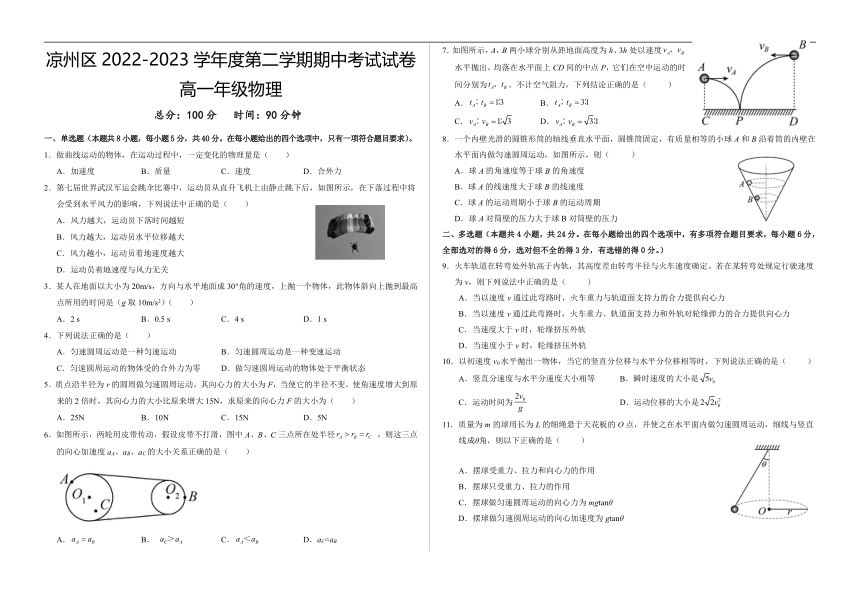 凉州区 2022-2023 学年度第二学期期中考试试卷
高一年级物理
总分：100分 时间：90分钟
一、单选题（本题共8小题，每小题5分，共40分。在每小题给出的四个选项中，只有一项符合题目要求）。
1．做曲线运动的物体，在运动过程中，一定变化的物理量是（ ）
A．加速度 B．质量 C．速度 D．合外力
2．第七届世界武汉军运会跳伞比赛中，运动员从直升飞机上由静止跳下后，如图所示，在下落过程中将
会受到水平风力的影响，下列说法中正确的是（ ）
A．风力越大，运动员下落时间越短
B．风力越大，运动员水平位移越大
C．风力越小，运动员着地速度越大
D．运动员着地速度与风力无关
3．某人在地面以大小为 20m/s，方向与水平地面成 30°角的速度，上抛一个物体，此物体斜向上抛到最高
点所用的时间是（g 取 10m/s²）（ ）
A．2 s B．0.5 s C．4 s D．1 s
4．下列说法正确的是（ ）
A．匀速圆周运动是一种匀速运动 B．匀速圆周运动是一种变速运动
C．匀速圆周运动的物体受的合外力为零 D．做匀速圆周运动的物体处于平衡状态
5．质点沿半径为 r 的圆周做匀速圆周运动，其向心力的大小为 F，当使它的半径不变，使角速度增大到原
来的 2 倍时，其向心力的大小比原来增大 15N，求原来的向心力 F 的大小为（ ）
A．25N B．10N C．15N D．5N
6．如图所示，两轮用皮带传动，假设皮带不打滑，图中 A、B、C 三点所在处半径 r_A > r_B = r_C，则这三点
的向心加速度 a_A、a_B、a_C 的大小关系正确的是（ ）
A
O₁
C
O₂
B
A．a_A = a_B B．a_C > a_A C．a_A < a_B D．a_C=a_B
7．如图所示，A，B 两小球分别从距地面高度为 h、3h 处以速度 v_A、v_B
水平抛出，均落在水平面上 CD 间的中点 P，它们在空中运动的时
间分别为 t_A、t_B。不计空气阻力，下列结论正确的是（ ）
A．t_A：t_B = 1∶3 B．t_A：t_B = 3∶1
C．v_A：v_B = 1∶√3 D．v_A：v_B = √3∶1
v_B B
A v_A
C P D
8．一个内壁光滑的圆锥形筒的轴线垂直水平面，圆锥筒固定，有质量相等的小球 A 和 B 沿着筒的内壁在
水平面内做匀速圆周运动，如图所示，则（ ）
A．球 A 的角速度等于球 B 的角速度
B．球 A 的线速度大于球 B 的线速度
C．球 A 的运动周期小于球 B 的运动周期
D．球 A 对筒壁的压力大于球 B 对筒壁的压力
A
B
二、多选题（本题共 4 小题，共 24 分。在每小题给出的四个选项中，有多项符合题目要求，每小题 6 分，
全部选对的得 6 分，选对但不全的得 3 分，有选错的得 0 分。）
9．火车轨道在转弯处外轨高于内轨，其高度差由转弯半径与火车速度确定。若在某转弯处规定行驶速度
为 v，则下列说法中正确的是（ ）
A．当以速度 v 通过此弯路时，火车重力与轨道面支持力的合力提供向心力
B．当以速度 v 通过此弯路时，火车重力、轨道面支持力和外轨对轮缘弹力的合力提供向心力
C．当速度大于 v 时，轮缘挤压外轨
D．当速度小于 v 时，轮缘挤压外轨
10．以初速度 v₀ 水平抛出一物体，当它的竖直分位移与水平分位移相等时，下列说法正确的是（ ）
A．竖直分速度与水平分速度大小相等 B．瞬时速度的大小是√5v₀
C．运动时间为 2v₀/g D．运动位移的大小是2√2v₀²
11．质量为 m 的球用长为 L 的细绳悬于天花板的 O 点，并使之在水平面内做匀速圆周运动，细线与竖直
线成θ角，则以下正确的是（ ）
A．摆球受重力、拉力和向心力的作用
B．摆球只受重力、拉力的作用
C．摆球做匀速圆周运动的向心力为 mgtanθ
D．摆球做匀速圆周运动的向心加速度为 gtanθ
θ
O r